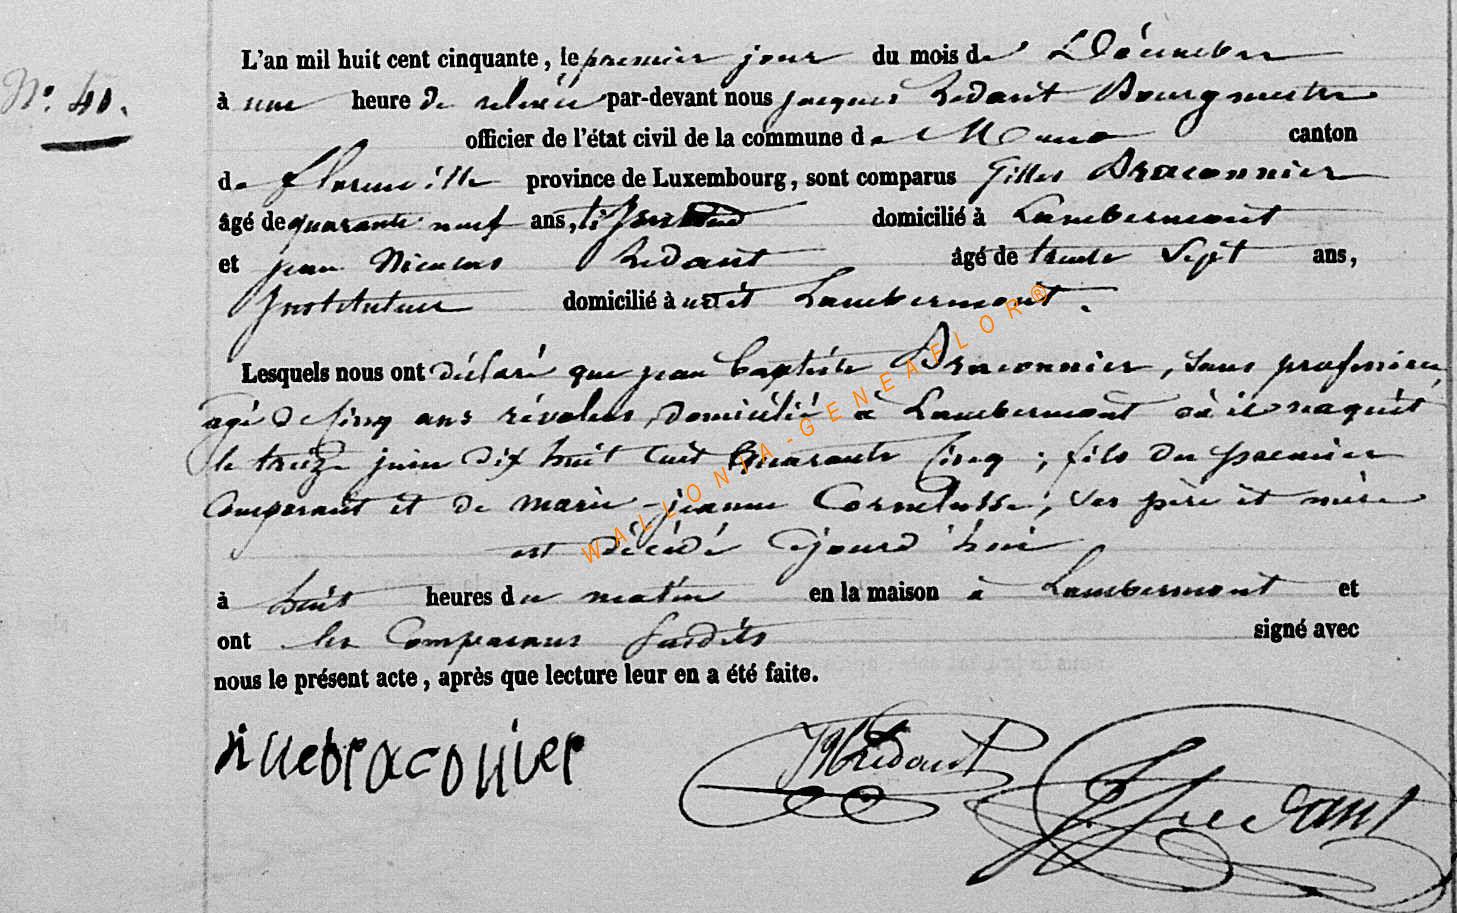 N° 40.
L'an mil huit cent cinquante, le premier jour du mois de Décembre
à une heure de relevée par-devant nous jacques Redant Bourgmestre
officier de l'état civil de la commune de Muno canton
de florenville province de Luxembourg, sont comparus Gilles Braconnier
âgé de quarante neuf ans, domicilié à Lambermont
et jean Nicolas Redant âgé de trente Sept ans,
Instituteur domicilié à Lambermont.
Lesquels nous ont déclaré que jean baptiste Braconnier, sans profession,
agé de cinq ans révolus, domicilié à Lambermont où il naquit
le treize juin dix huit cent quarante cinq ; fils du premier
Comparant et de marie-jeanne Cornelusse, ses père et mère
est décédé ajourd'hui
à huit heures du matin en la maison à Lambermont et
ont les Comparans susdits signé avec
nous le présent acte, après que lecture leur en a été faite.
braconnier JNRedant JRedant
WALLONIA-GENEAFLOR®